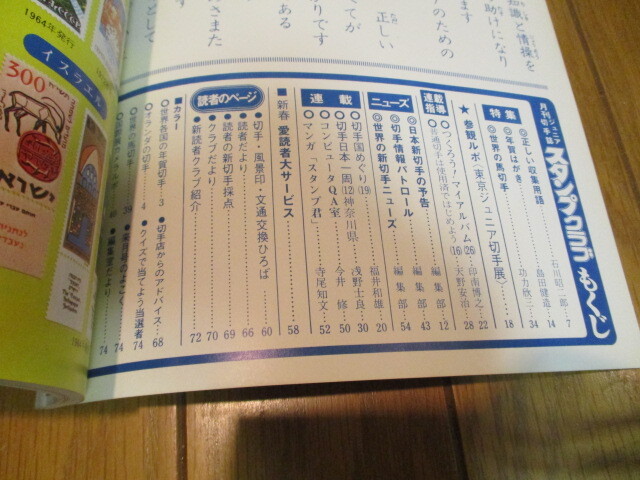 識と情操を
助けになり
ます
のための
正しい
てが
りです
ある
さまた
として
月刊ジュニア切手誌
スタンプクラブもくじ
特集
◎正しい収集用語 石川昭二郎 7
◎年賀はがき 島田健造 14
◎世界の馬切手 功力欣二 34
★参観ルポ〈東京ジュニア切手展〉 18
連載指導
◎つくろう!マイ・アルバム(26) 印南博之 22
◎普通切手は使用済ではじめよう(16) 天野安治 28
ニューズ
◎日本新切手の予告 編集部 12
◎切手情報パトロール 編集部 43
◎世界の新切手ニューズ 編集部 54
連載
◎切手国めぐり(19) 福井和雄 20
◎切手日本一周(12)神奈川県 浅野士良 30
◎コンピュータQA室 今井修 50
◎マンガ「スタンプ君」 寺尾知文 52
■新春 愛読者大サービス 58
読者のページ
●切手・風景印・文通交換ひろば 60
●読者だより 66
●読者の新切手採点 69
●クラブだより 70
●新読者クラブ紹介 72
■カラー
◎世界各国の年賀切手 3
◎オランダの切手 4
◎世界の馬切手 36
40
●切手店からのアドバイス 68
●クイズで当てよう当選者 74
●来月号のよこく 74
●編集室だより 74
1964年発行
イスラエル
300
ישראל